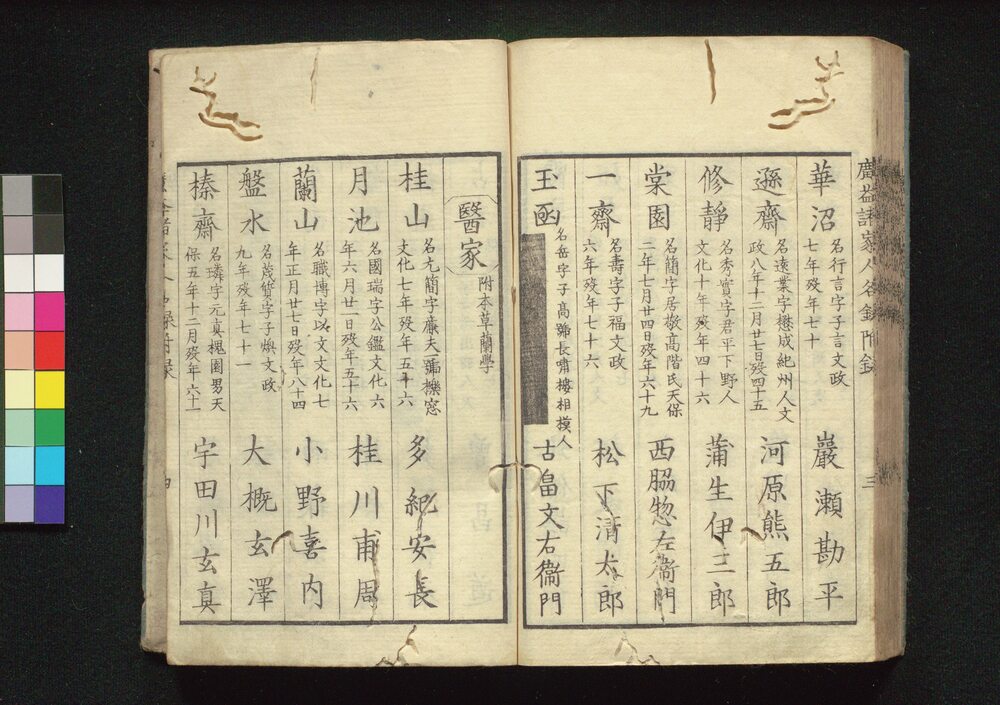 廣益諸家人名録附録
三
華沼
名行言字子言文政
七年歿年七十
巖瀬勘平
遜齋
名遠業字懋成紀州人文
政八年十二月廿七日歿四十五
河原熊五郎
修靜
名秀實字君平下野人
文化十年歿年四十六
蒲生伊三郎
棠園
名簡字居敬高階氏天保
二年七月廿四日歿年六十九
西脇惣左衞門
一齋
名壽字子福文政
六年歿年七十六
松下清太郎
玉函
名岳字子高號長嘯樓相模人
古畠文右衞門
醫家
附本草蘭學
桂山
名元簡字廉夫一號櫟窓
文化七年歿年五十六
多紀安長
月池
名國瑞字公鑑文化六
年六月廿一日歿年五十六
桂川甫周
蘭山
名職博字以文文化七
年正月廿七日歿年八十四
小野喜内
盤水
名茂質字子煥文政
九年歿年七十一
大概玄澤
榛齋
名璘字元真槐園男天
保五年十二月歿年六十一
宇田川玄真
四